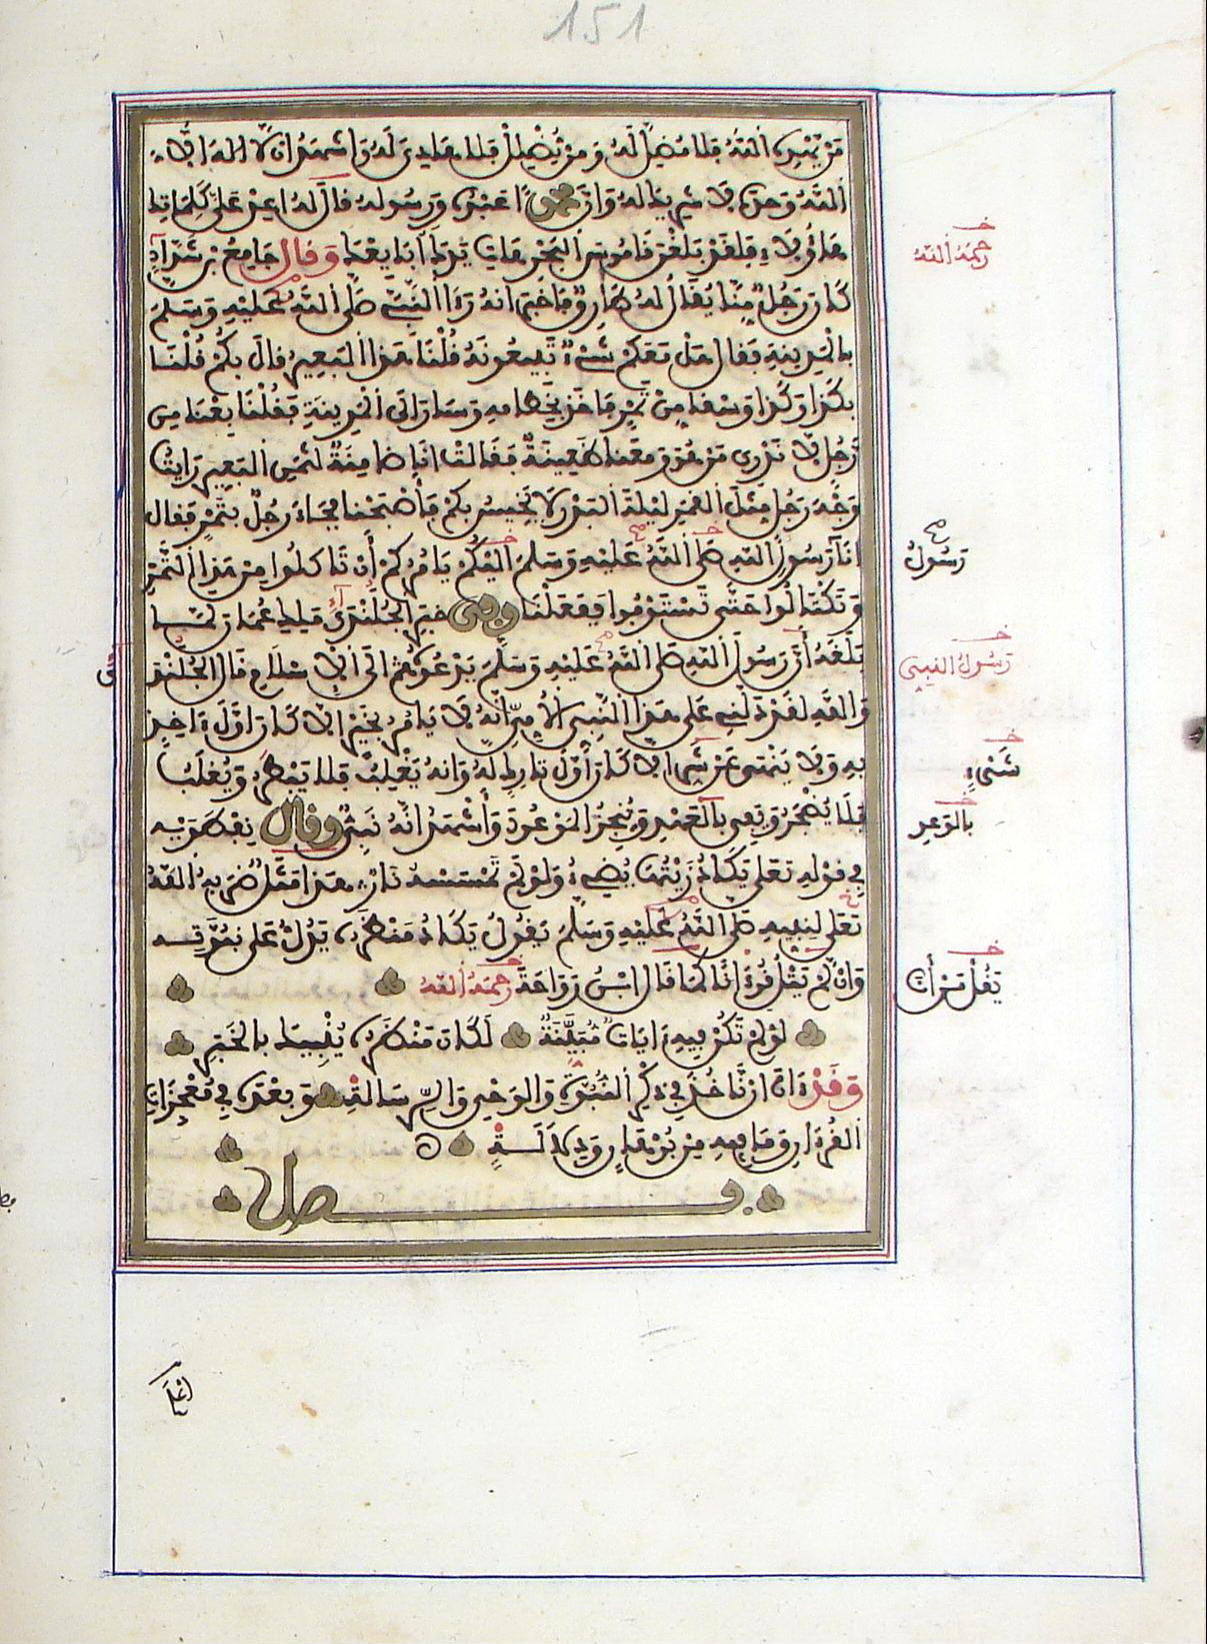 151
مَنْ يَّهْدِهِ اللَّهُ فَلَا مُضِلَّ لَهُ وَمَنْ يُّضْلِلْ فَلَا هَادِيَ لَهُ وَأَشْهَدُ أَن لَّا إِلَهَ إِلَّا
اللَّهُ وَحْدَهُ لَا شَرِيكَ لَهُ وَأَنَّ مُحَمَّدًا عَبْدُهُ وَرَسُولُهُ قَالَ لَهُ أَعِدْ عَلَيَّ كَلِمَاتِكَ
هَؤُلَاءِ فَلَقَدْ بَلَغْنَ قَامُوسَ الْبَحْرِ هَاتِ يَدَكَ أُبَايِعْكَ وَقَالَ جَامِعُ بْنُ شَدَّادٍ
رَحِمَهُ اللَّهُ
كَانَ رَجُلٌ مِّنَّا يُقَالُ لَهُ طَارِقٌ فَأَخْبَرَ أَنَّهُ رَأَى النَّبِيَّ صَلَّى اللَّهُ عَلَيْهِ وَسَلَّمَ
بِالْمَدِينَةِ فَقَالَ هَلْ مَعَكُمْ شَيْءٌ تَبِيعُونَهُ قُلْنَا هَذَا الْبَعِيرُ قَالَ بِكَمْ قُلْنَا
بِكَذَا وَكَذَا وَسْقًا مِنْ تَمْرٍ فَأَخَذَ بِخِطَامِهِ وَسَارَ إِلَى الْمَدِينَةِ فَقُلْنَا بِعْنَا مِن
رَّجُلٍ لَا نَدْرِي مَنْ هُوَ وَمَعَنَا ظَعِينَةٌ فَقَالَتْ أَنَا ضَامِنَةٌ لِثَمَنِ الْبَعِيرِ رَأَيْتُ
وَجْهَ رَجُلٍ مِثْلَ الْقَمَرِ لَيْلَةَ الْبَدْرِ لَا يَخِيسُ بِكُمْ فَأَصْبَحْنَا فَجَاءَ رَجُلٌ بِتَمْرٍ فَقَالَ
أَنَا رَسُولُ رَسُولِ اللَّهِ صَلَّى اللَّهُ عَلَيْهِ وَسَلَّمَ إِلَيْكُمْ يَأْمُرُكُمْ أَنْ تَأْكُلُوا مِنْ هَذَا التَّمْرِ
وَتَكْتَالُوا حَتَّى تَسْتَوْفُوا فَفَعَلْنَا وَفِي خَبَرِ الْجُلَنْدَى مَلِكِ عُمَانَ لَمَّا
بَلَغَهُ أَنَّ رَسُولَ اللَّهِ صَلَّى اللَّهُ عَلَيْهِ وَسَلَّمَ يَدْعُوهُ إِلَى الْإِسْلَامِ قَالَ الْجُلَنْدَى
رَسُولُ النَّبِيّ
وَاللَّهِ لَقَدْ دَلَّنِي عَلَى هَذَا النَّبِيِّ الْأُمِّيِّ أَنَّهُ لَا يَأْمُرُ بِخَيْرٍ إِلَّا كَانَ أَوَّلَ آخِذٍ
بِهِ وَلَا يَنْهَى عَنْ شَيْءٍ إِلَّا كَانَ أَوَّلَ تَارِكٍ لَهُ وَأَنَّهُ يَغْلِبُ فَلَا يَبْطَرُ وَيُغْلَبُ
شَيْءٍ
فَلَا يَضْجَرُ وَيَفِي بِالْعَهْدِ وَيُنْجِزُ الْمَوْعُودَ وَأَشْهَدُ أَنَّهُ نَبِيٌّ وَقَالَ نِفْطَوَيْهِ
بِالْوَعْدِ
فِي قَوْلِهِ تَعَالَى يَكَادُ زَيْتُهَا يُضِيءُ وَلَوْ لَمْ تَمْسَسْهُ نَارٌ هَذَا مَثَلٌ ضَرَبَهُ اللَّهُ
تَعَالَى لِنَبِيِّهِ صَلَّى اللَّهُ عَلَيْهِ وَسَلَّمَ يَقُولُ يَكَادُ مَنْظَرُهُ يَدُلُّ عَلَى نُبُوَّتِهِ
وَإِنْ لَمْ يَتْلُ قُرْآنًا كَمَا قَالَ ابْنُ رَوَاحَةَ رَحِمَهُ اللَّهُ
لَوْ لَمْ تَكُنْ فِيهِ آيَاتٌ مُّبَيِّنَةٌ لَكَانَ مَنْظَرُهُ يُنْبِيكَ بِالْخَبَرِ
وَقَدْ آنَ أَنْ نَّأْخُذَ فِي ذِكْرِ النُّبُوَّةِ وَالْوَحْيِ وَالرِّسَالَةِ وَبَعْدَهُ فِي مُعْجِزَاتِ
الْقُرْآنِ وَمَا فِيهِ مِنْ بُرْهَانٍ وَدَلَالَةٍ
فصل
اعْلَمْ